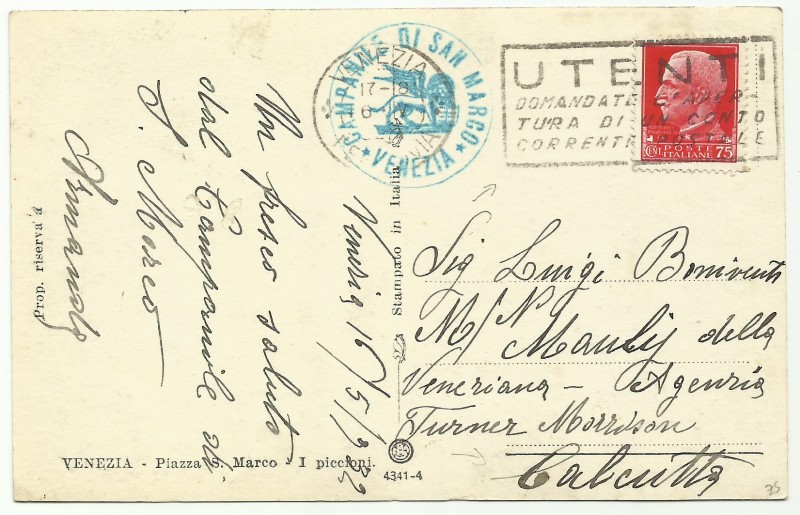 CAMPANILE DI SAN MARCO
★ VENEZIA ★
VENEZIA
17-18
UTENTI
DOMANDATE L'APER-
TURA DI UN CONTO
CORRENTE POSTALE
POSTE
ITALIANE 75
Venezia 16/5/932
Un fresco saluto
dal Campanile di
S. Marco
Armando
Sig Luigi Boniventi
M/N Mauly della
Veneziana - Agenzia
Turner Morrison
Calcutta
Prop. riservata
Stampato in Italia
VENEZIA - Piazza S. Marco - I piccioni.
4341-4
35